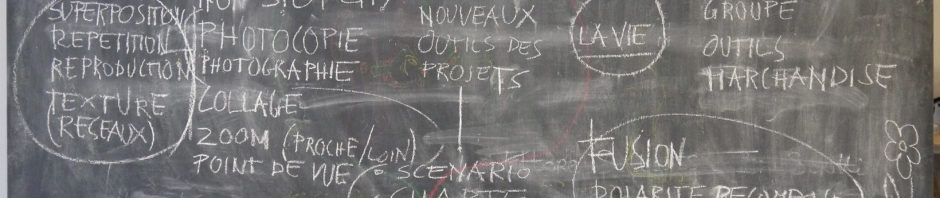 SUPERPOSITION
REPETITION
REPRODUCTION
TEXTURE
(RESEAUX)
PHOTOCOPIE
PHOTOGRAPHIE
COLLAGE
ZOOM (PROCHE/LOIN)
POINT DE VUE
NOUVEAUX
OUTILS DES
PROJETS
• SCENARIO
CHARTE
LA VIE
GROUPE
OUTILS
MARCHANDISE
FUSION
POLARITE